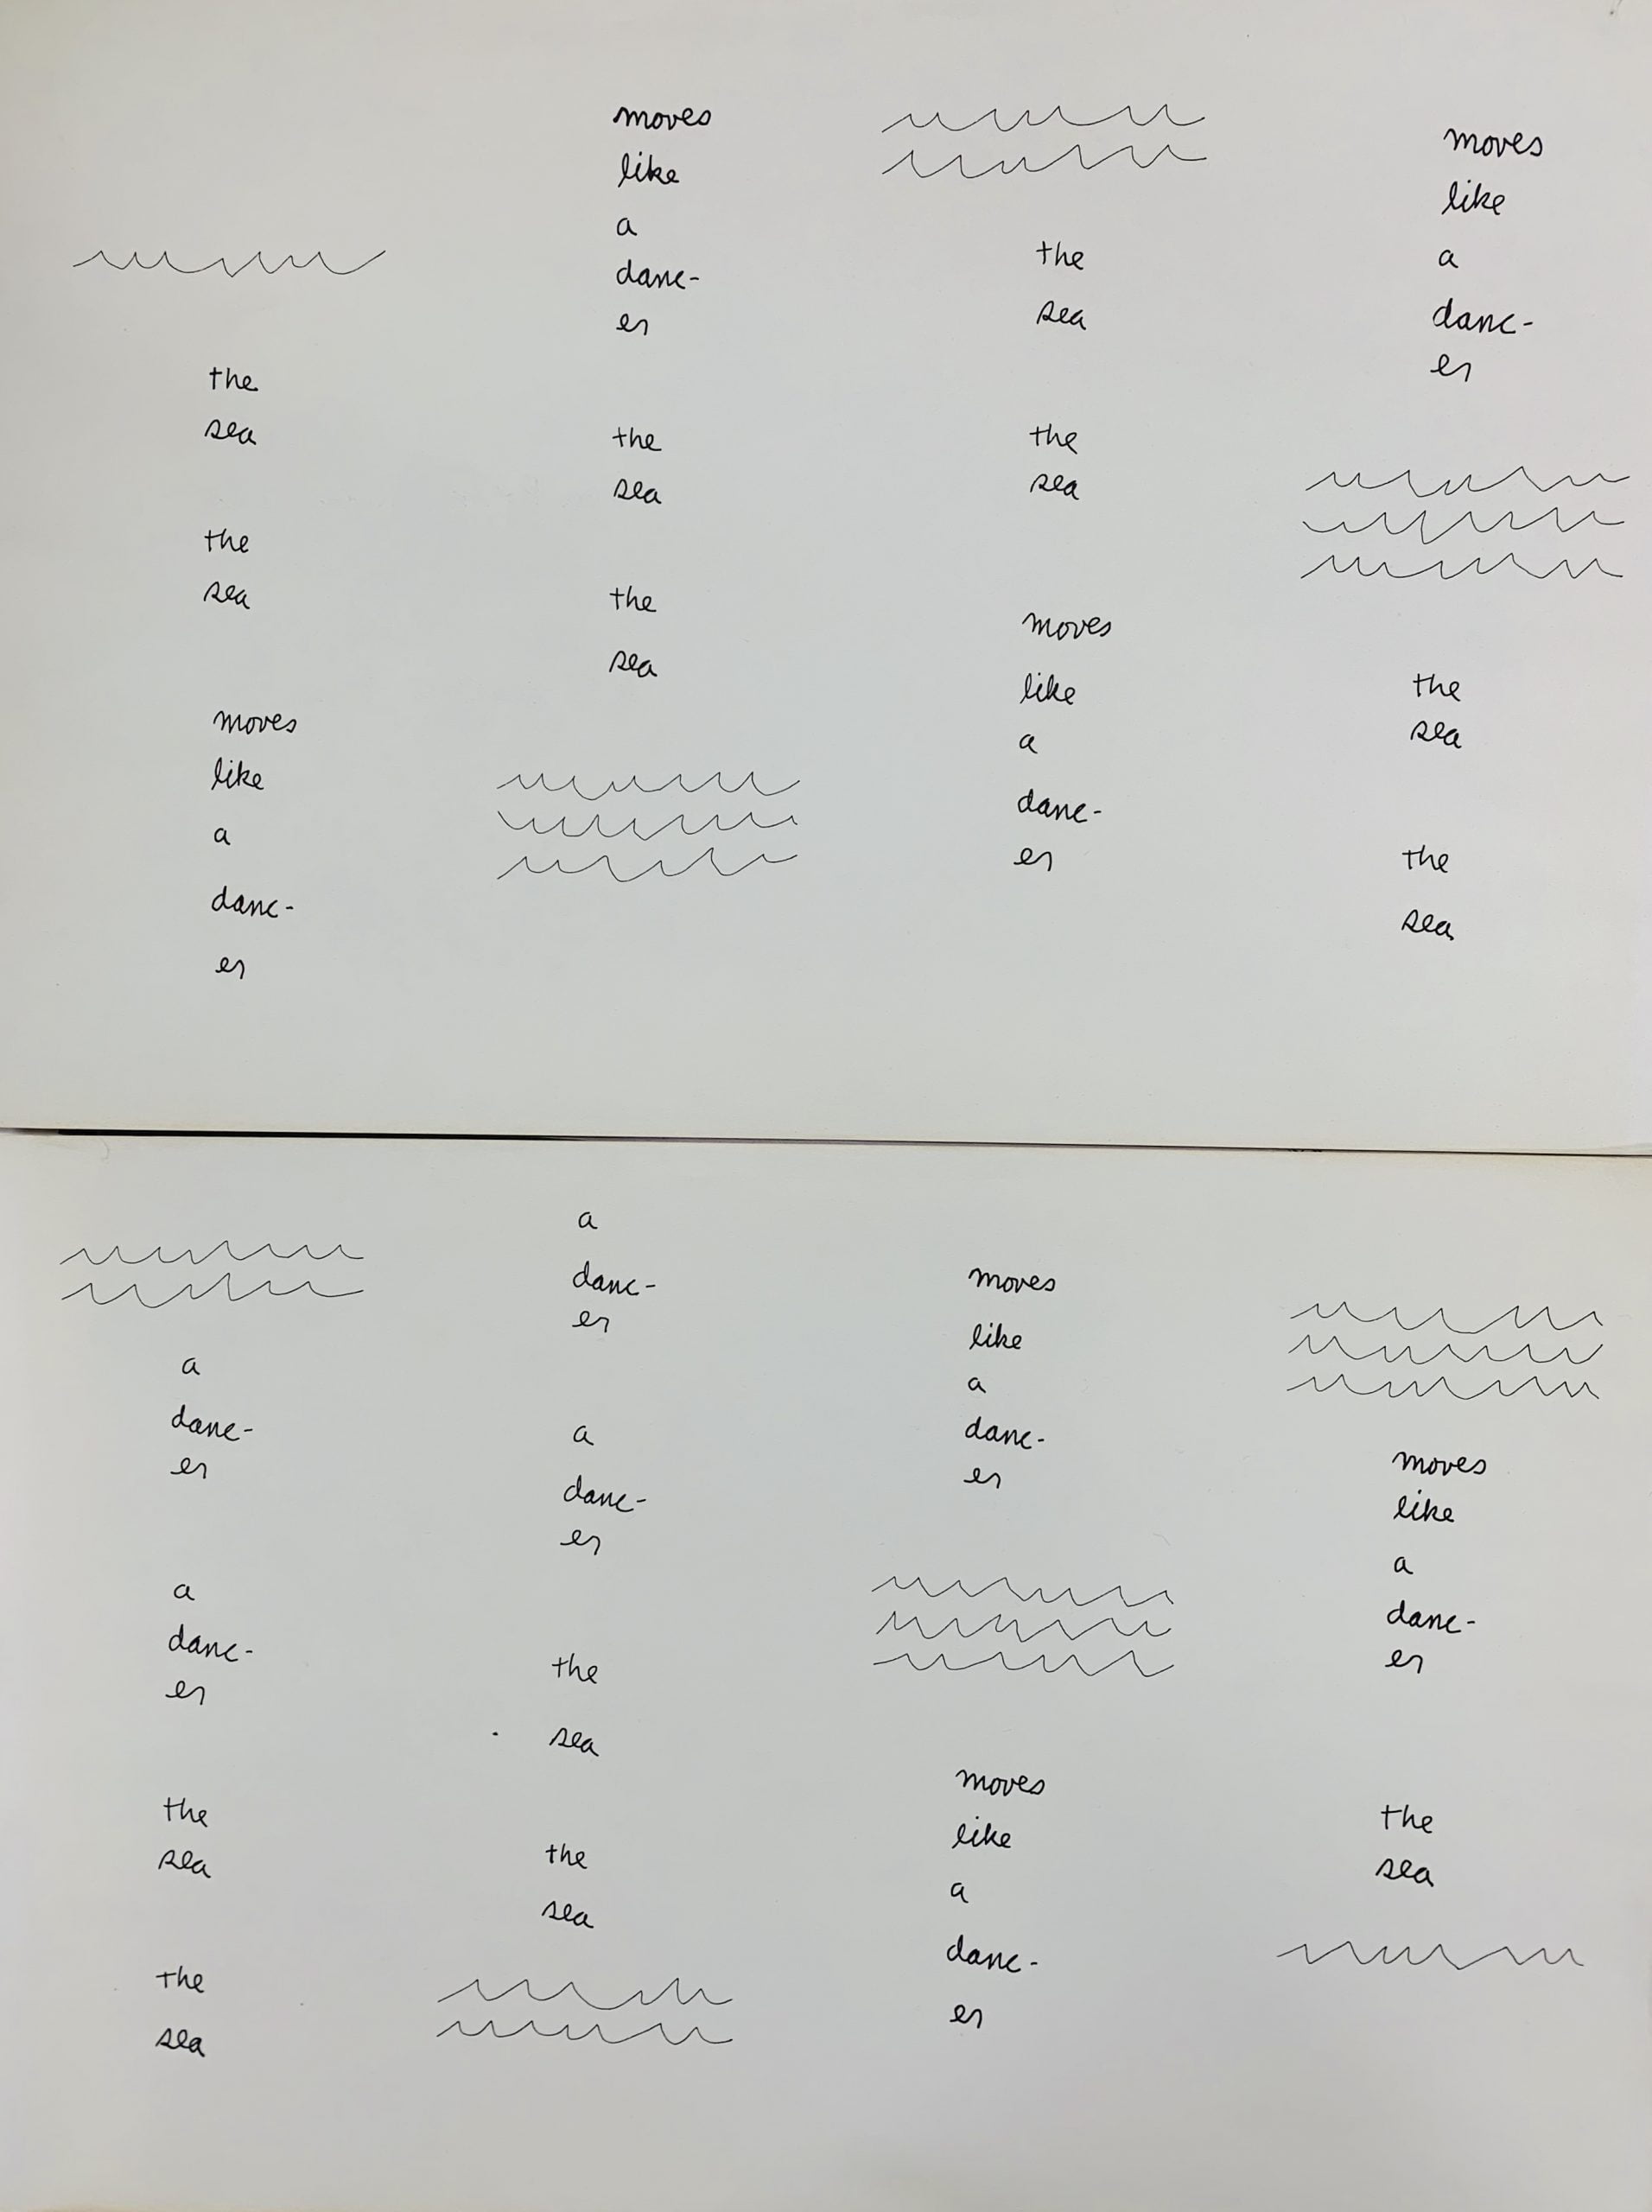 the
sea
the
sea
moves
like
a
danc-
er
moves
like
a
danc-
er
the
sea
the
sea
the
sea
the
sea
moves
like
a
danc-
er
moves
like
a
danc-
er
the
sea
the
sea
a
danc-
er
a
danc-
er
the
sea
the
sea
a
danc-
er
a
danc-
er
the
sea
the
sea
moves
like
a
danc-
er
moves
like
a
danc-
er
moves
like
a
danc-
er
the
sea